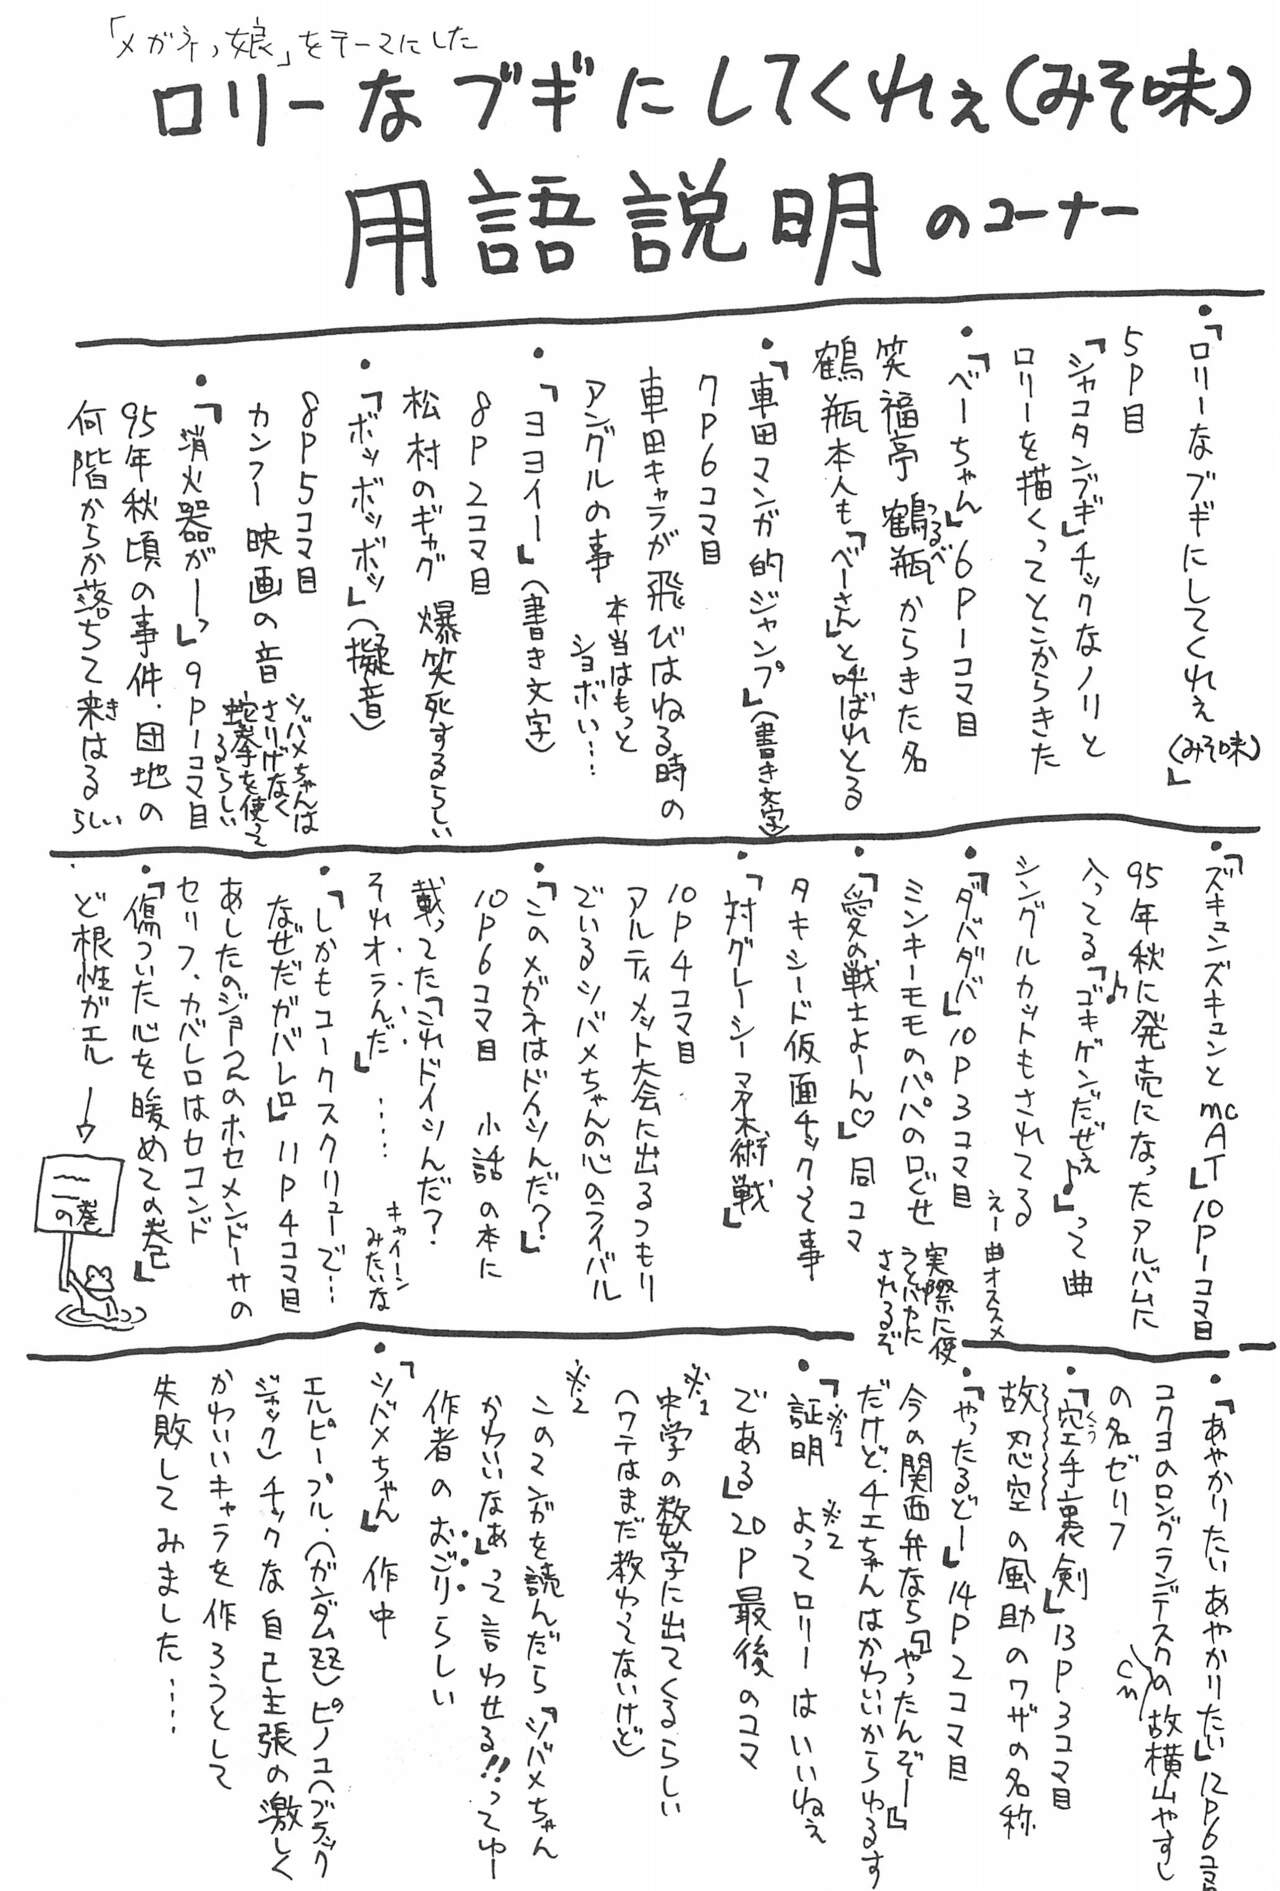 「メガネっ娘」をテーマにした
ロリーなブギにしてくれぇ(みそ味)
用語説明のコーナー
・「ロリーなブギにしてくれぇ(みそ味)」
5P目
「シャコタンブギ」チックなノリと
ロリーを描くってとこからきた
・「べーちゃん」6P1コマ目
笑福亭鶴瓶からきた名
つるべ
鶴瓶本人も「べーさん」と呼ばれとる
・「車田マンガ的ジャンプ」(書き文字)
7P6コマ目
車田キャラが飛びはねる時の
アングルの事
本当はもっと
ショボい…
・「ヨヨイー」(書き文字)
8P2コマ目
松村のギャグ 爆笑死するらしい
・「ボッボッボッ」(擬音)
8P5コマ目
カンフー映画の音
ツバメちゃんは
さりげなく
蛇拳を使って
るらしい
・「消火器がーっ」9P1コマ目
95年秋頃の事件.団地の
何階からか落ちて来はるらしい
き
・「ズキュンズキュンとmcAT」10P1コマ目
95年秋に発売になったアルバムに
入ってる「ゴキゲンだぜぇ♪」って曲
シングルカットもされてる
えー曲オススメ
・「ダバダバ」10P3コマ目
ミンキーモモのパパの口ぐせ
実際に使
うとバカに
されるぞ
・「愛の戦士よーん♡」同コマ
タキシード仮面チックて事
・「対グレーシーマネ木術戦」
10P4コマ目
アルティメット大会に出るつもり
でいるツバメちゃんの心のライバル
・「このメガネはドイツんだ?」
10P6コマ目 小話の本に
載ってた「これドイツんだ?
それオランだ」……
キャイーン
みたいな
・「しかもコークスクリューで…
なぜだガバレロ」11P4コマ目
あしたのジョー2のホセメンドーサの
セリフ.カバレロはセコンド
・「傷ついた心を暖めての巻」
ど根性ガエル
の巻
・「あやかりたいあやかりたい」12P6コマ目
コクヨのロングランデスクの故横山やすし
CM
の名ゼリフ
・「空手裏剣」13P3コマ目
くう
故忍空の風助のワザの名称
・「やったるどー」14P2コマ目
今の関西弁なら「やったんぞー」
だけど.チエちゃんはかわいいからゆるす
・「証明 よってロリーはいいねぇ
※1
※2
である」20P最後のコマ
※1
中学の数学に出てくるらしい
(ワテはまだ教わってないけど)
※2
このマンガを読んだら「ツバメちゃん
かわいいなぁ」って言わせる!!ってゆー
作者のおごりらしい
・「ツバメちゃん」作中
エルピープル.(ガンダムZZ)ピノコ(ブラック
ジャック)チックな自己主張の激しく
かわいいキャラを作ろうとして
失敗してみました……